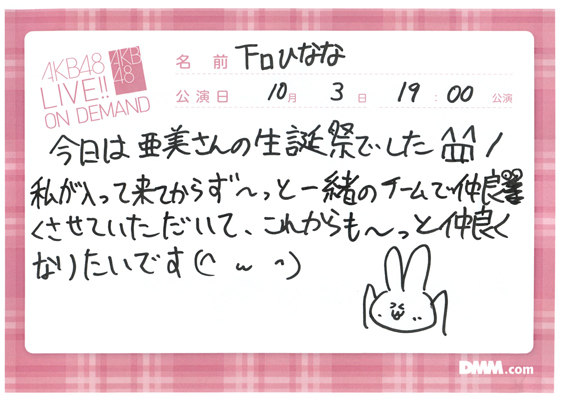 AKB48
LIVE!!
ON DEMAND
AKB
48
名前 下口ひなな
公演日 10月 3日 19:00 公演
今日は亜美さんの生誕祭でした
私が入って来てからず〜っと一緒のチームで仲良
くさせていただいて、これからも〜っと仲良く
なりたいです(^ω^)
DMM.com